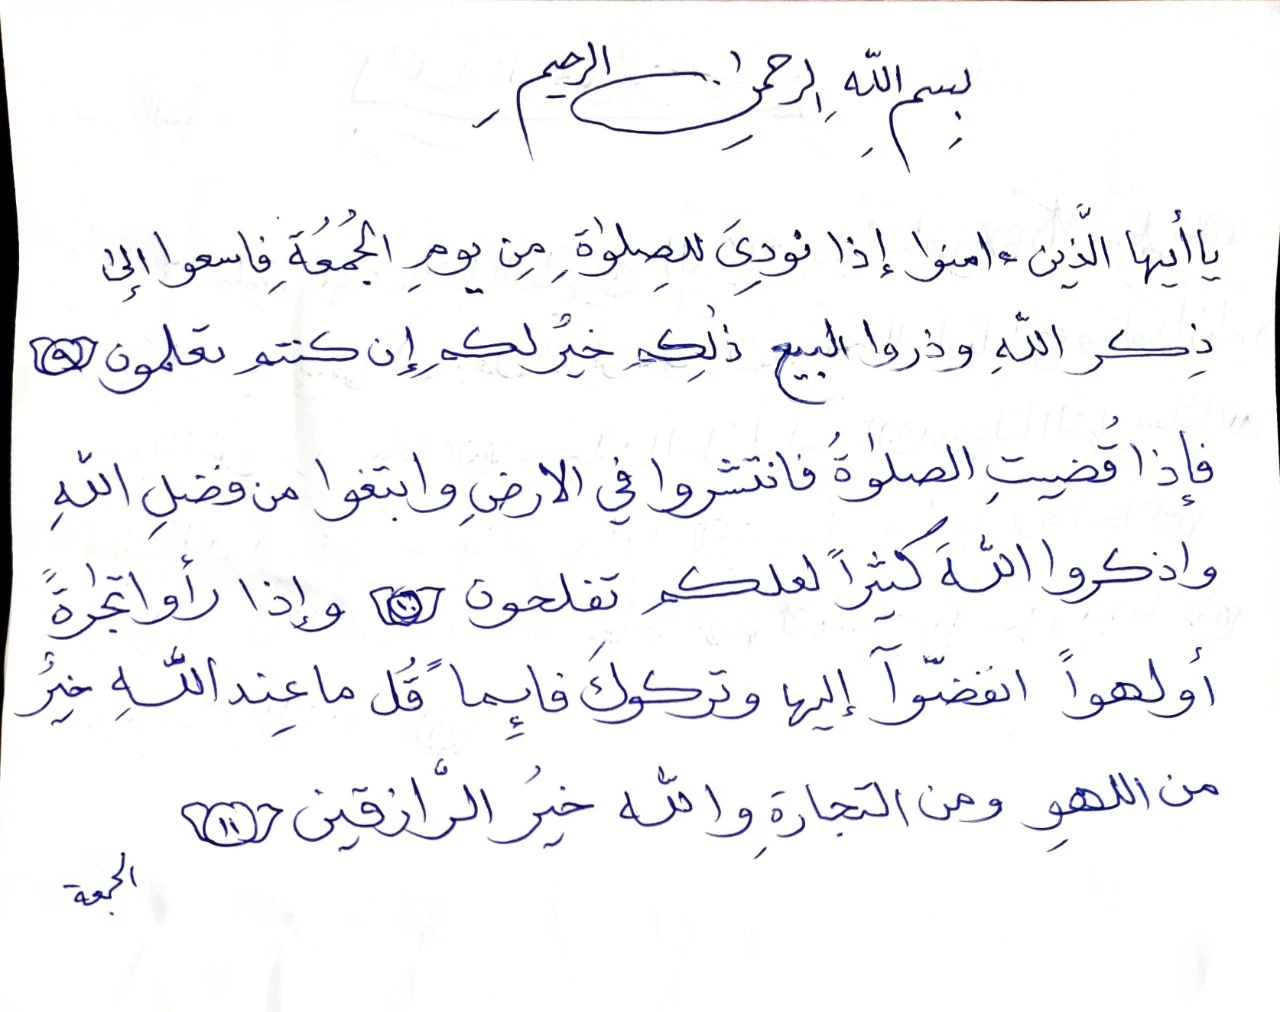 بِسمِ اللّٰهِ الرحمٰنِ الرحيمِ
ياأيها الَّذين ءامنوا إذا نودِىَ للصِلوٰةِ مِن يومِ الجُمُعَةِ فاسعوا إلىٰ
ذِكر اللّٰهِ وذروا البيع ذٰلِكم خيرٌ لكم إن كنتم تعلمون ٩
فإذا قُضيتِ الصلوٰةُ فانتشروا في الارضِ وابتغوا من فضلِ اللّٰهِ
واذكروا اللّٰهَ كثيراً لعلكم تفلحون ١٠ وإذا رأوا تجٰرةً
أو لهواً انفضّوآ إليها وتركوكَ قايٕماً قُل ما عِند اللّٰهِ خيرٌ
من اللهوِ ومن التجارةِ واللّٰه خيرُ الرَّازقين ١١
الجمعة